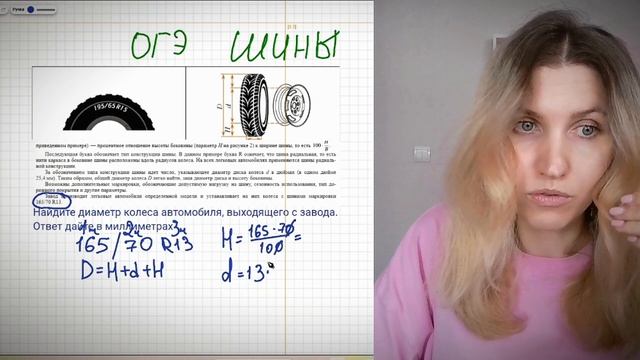 Ручка
ОГЭ ШИНЫ
195/65 R13
D
d
H
приведенном примере) — процентное отношение высоты боковины (параметр H на рисунке 2) к ширине шины, то есть 100 · H/B
Последующая буква обозначает тип конструкции шины. В данном примере буква R означает, что шина радиальная, то есть
нити каркаса в боковине шины расположены вдоль радиусов колеса. На всех легковых автомобилях применяются шины радиаль-
ной конструкции.
За обозначением типа конструкции шины идет число, указывающее диаметр диска колеса d в дюймах (в одном дюйме
25,4 мм). Таким образом, общий диаметр колеса D легко найти, зная диаметр диска и высоту боковины.
Возможны дополнительные маркировки, обозначающие допустимую нагрузку на шину, сезонность использования, тип до-
рожного покрытия и другие параметры.
Завод производит легковые автомобили определенной модели и устанавливает на них колеса с шинами маркировки
165/70 R13.
Найдите диаметр колеса автомобиля, выходящего с завода.
Ответ дайте в миллиметрах.
1ч 2ч 3ч
165/70 R13
H = 165·70/100 =
D = H + d + H
d = 13·